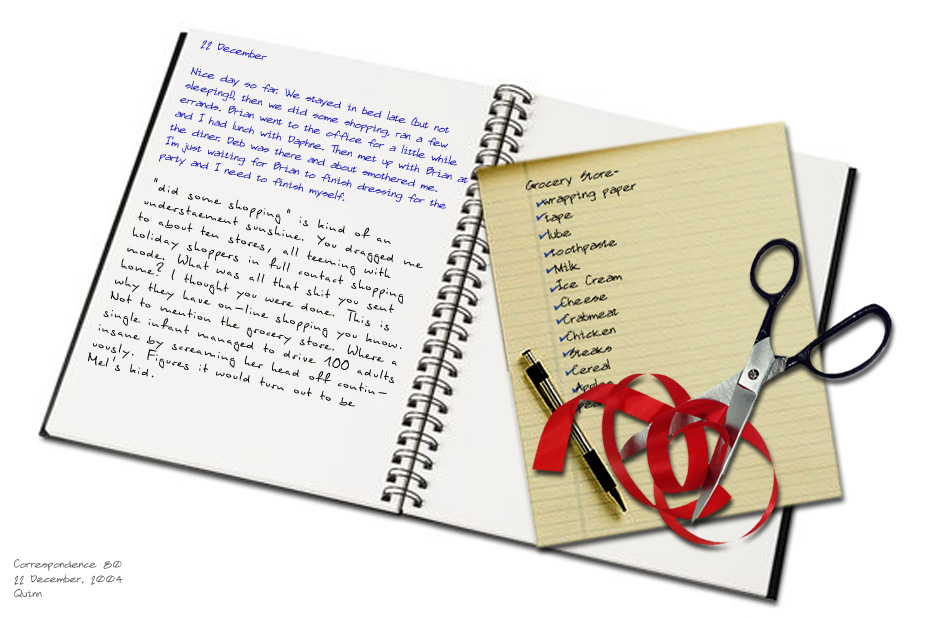 22 December
Nice day so far. We stayed in bed late (but not
sleeping!), then we did some shopping, ran a few
errands. Brian went to the office for a little while
and I had lunch with Daphne. Then met up with Brian at
the diner. Deb was there and about smothered me.
I'm just waiting for Brian to finish dressing for the
party and I need to finish myself.
"did some shopping" is kind of an
understaement sunshine. You dragged me
to about ten stores, all teeming with
holiday shoppers in full contact shopping
mode. What was all that shit you sent
home? I thought you were done. This is
why they have on-line shopping you know.
Not to mention the grocery store. Where a
single infant managed to drive 100 adults
insane by screaming her head off contin-
uously. Figures it would turn out to be
Mel's kid.
Grocery Store-
wrapping paper
tape
lube
toothpaste
Milk
Ice Cream
Cheese
Crabmeat
Chicken
Steaks
Cereal
Correspondence 80
22 December, 2004
Quinn